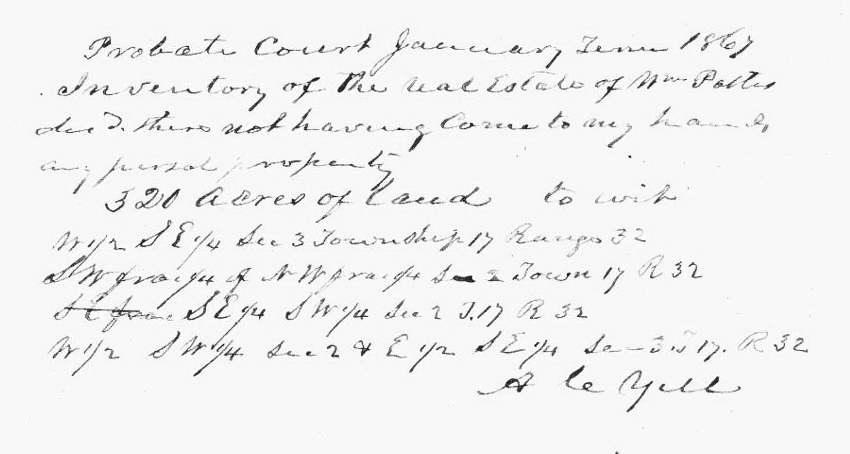 Probate Court January Term 1867
Inventory of the real Estate of Wm Potter
decd. there not having Come to my hands
any persol property
320 Acres of land to wit
W 1/2 S E 1/4 Sec 3 Township 17 Range 32
S W frac 1/4 of N W frac 1/4 Sec 2 Town 17 R 32
S E frac S E 1/4 S W 1/4 Sec 2 T. 17 R 32
W 1/2 S W 1/4 Sec 2 & E 1/2 S E 1/4 Sec 3 T 17. R 32
A